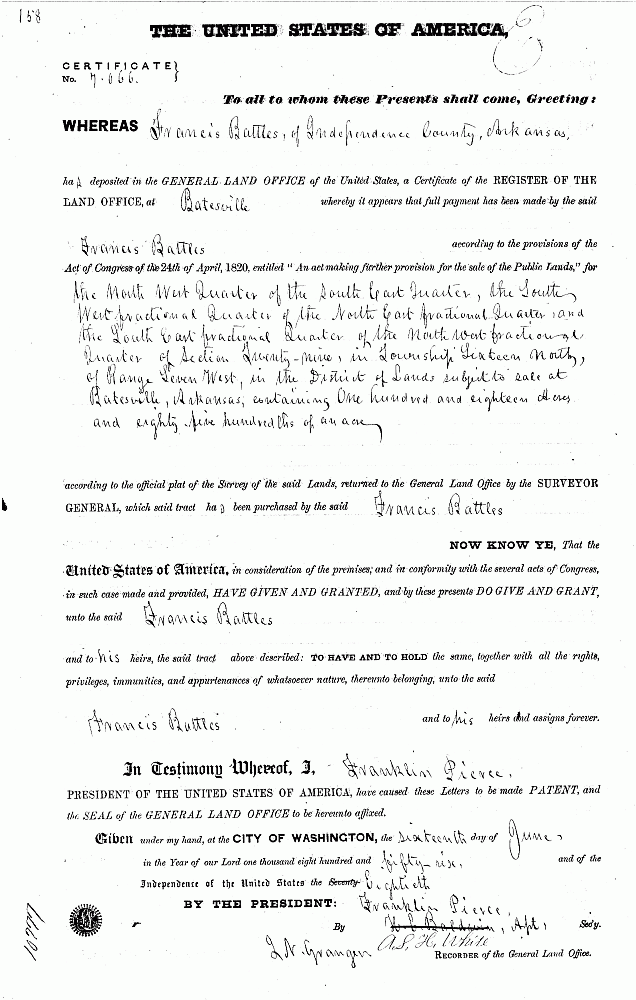 158
THE UNITED STATES OF AMERICA,
CERTIFICATE
No. 7.066.
To all to whom these Presents shall come, Greeting:
WHEREAS Francis Battles, of Independence County, Arkansas,
ha s deposited in the GENERAL LAND OFFICE of the United States, a Certificate of the REGISTER OF THE
LAND OFFICE, at Batesville whereby it appears that full payment has been made by the said
Francis Battles according to the provisions of the
Act of Congress of the 24th of April, 1820, entitled "An act making further provision for the sale of the Public Lands," for
the North West Quarter of the South East Quarter, the South
West fractional Quarter of the North East fractional Quarter, and
the South East fractional Quarter of the North West fractional
Quarter of Section Twenty-nine, in Township Sixteen North,
of Range Seven West, in the District of Lands subject to sale at
Batesville, Arkansas, containing One hundred and eighteen Acres
and eighty five hundredths of an acre
according to the official plat of the Survey of the said Lands, returned to the General Land Office by the SURVEYOR
GENERAL, which said tract ha s been purchased by the said Francis Battles
NOW KNOW YE, That the
United States of America, in consideration of the premises, and in conformity with the several acts of Congress,
in such case made and provided, HAVE GIVEN AND GRANTED, and by these presents DO GIVE AND GRANT,
unto the said Francis Battles
and to his heirs, the said tract above described: TO HAVE AND TO HOLD the same, together with all the rights,
privileges, immunities, and appurtenances of whatsoever nature, thereunto belonging, unto the said
Francis Battles and to his heirs and assigns forever.
In Testimony Whereof, I, Franklin Pierce,
PRESIDENT OF THE UNITED STATES OF AMERICA, have caused these Letters to be made PATENT, and
the SEAL of the GENERAL LAND OFFICE to be hereunto affixed.
Given under my hand, at the CITY OF WASHINGTON, the sixteenth day of June,
in the Year of our Lord one thousand eight hundred and fifty-six, and of the
Independence of the United States the Seventy Eightieth
BY THE PRESIDENT: Franklin Pierce,
By H. E. Baldwin, Apt, Sec'y.
A.S.H. White
J. N. Granger RECORDER of the General Land Office.